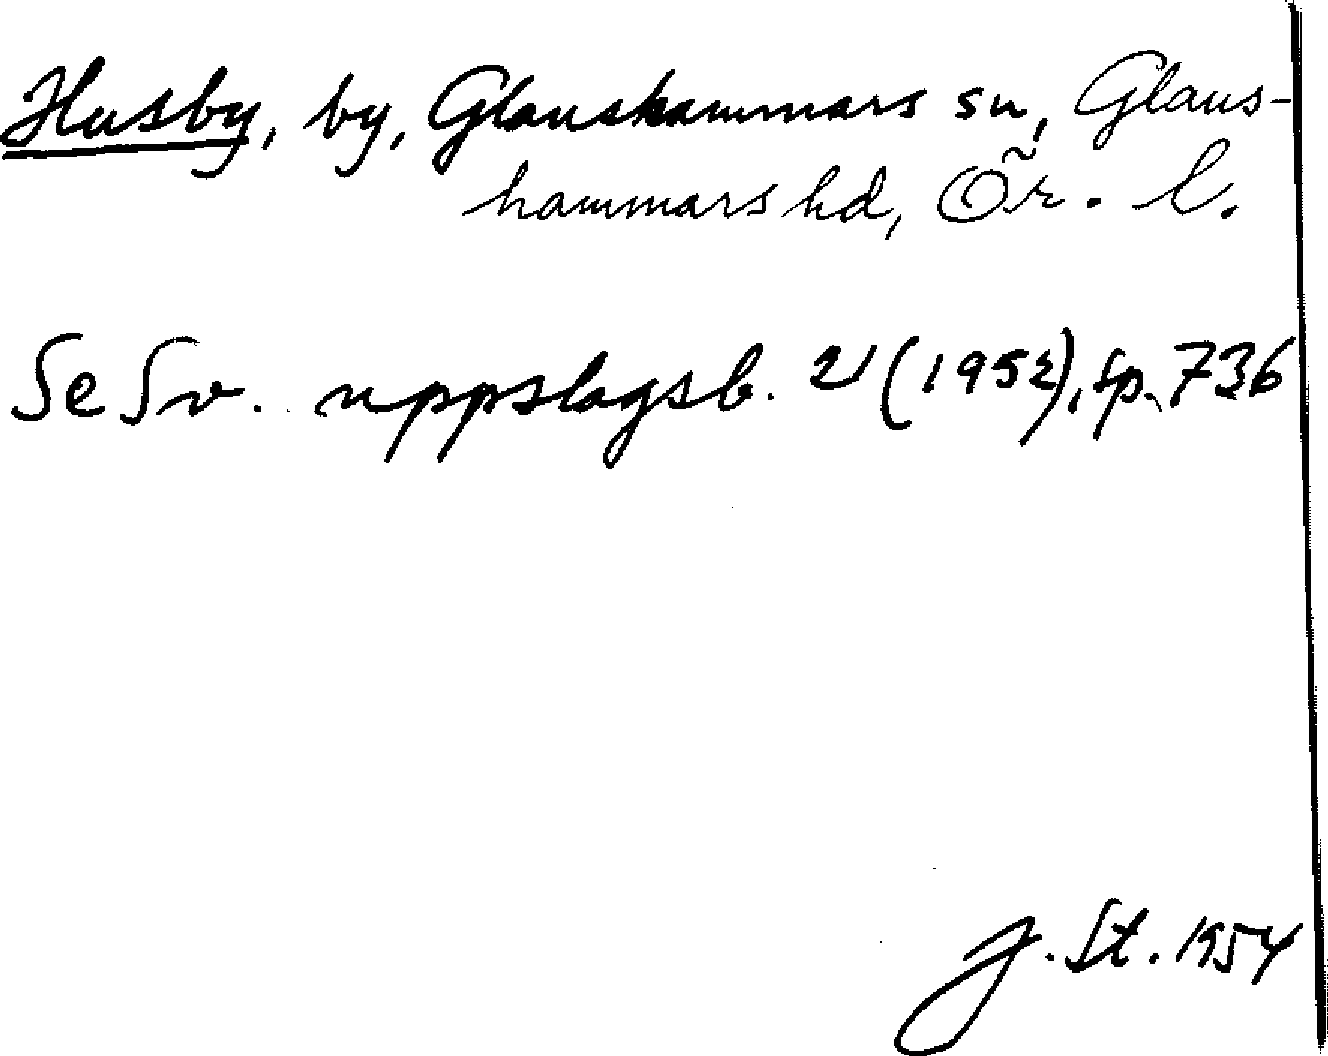 Husby, by, Glanshammars sn, Glans-
hammars hd, Ör. l.
Se Sv. uppslagsb. 21 (1952), sp. 736
J. St. 1954